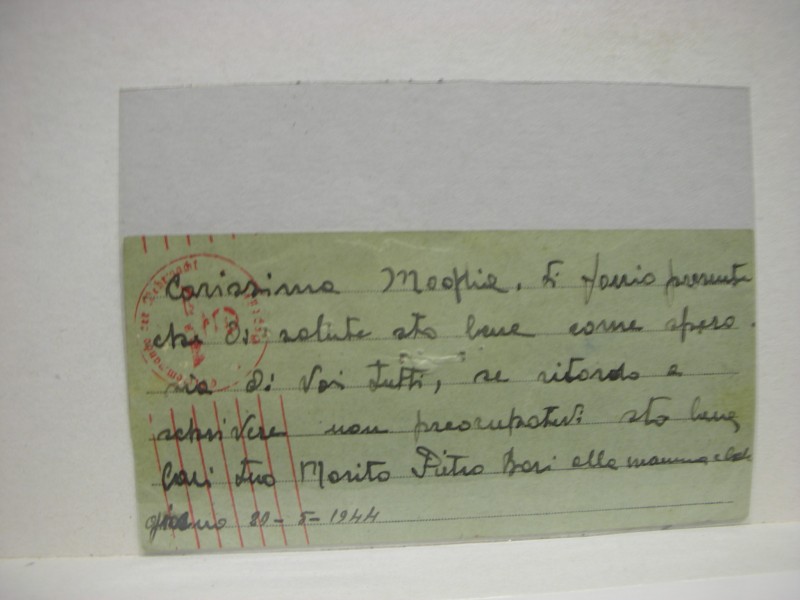 Carissima Moglie, ti faccio presente
che di salute sto bene come spero
sia di Voi tutti, se ritardo a
scrivere non preocupatevi sto bene
Cari tuo Marito Pietro Baci alla mamma e
30-5-1944